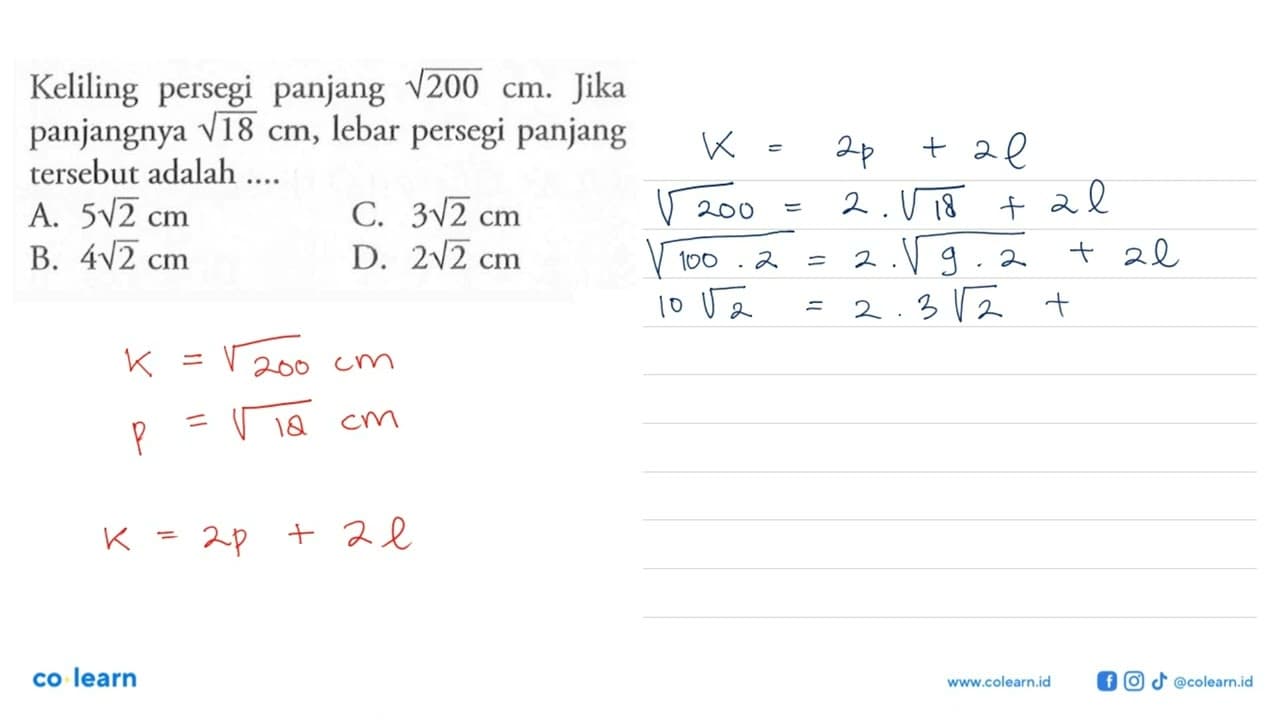 Keliling persegi panjang √200 cm. Jika
panjangnya √18 cm, lebar persegi panjang
tersebut adalah ....
A. 5√2 cm C. 3√2 cm
B. 4√2 cm D. 2√2 cm
K = √200 cm
p = √18 cm
K = 2p + 2l
K = 2p + 2l
√200 = 2.√18 + 2l
√100.2 = 2.√9.2 + 2l
10√2 = 2.3√2 +
co learn
www.colearn.id
@colearn.id